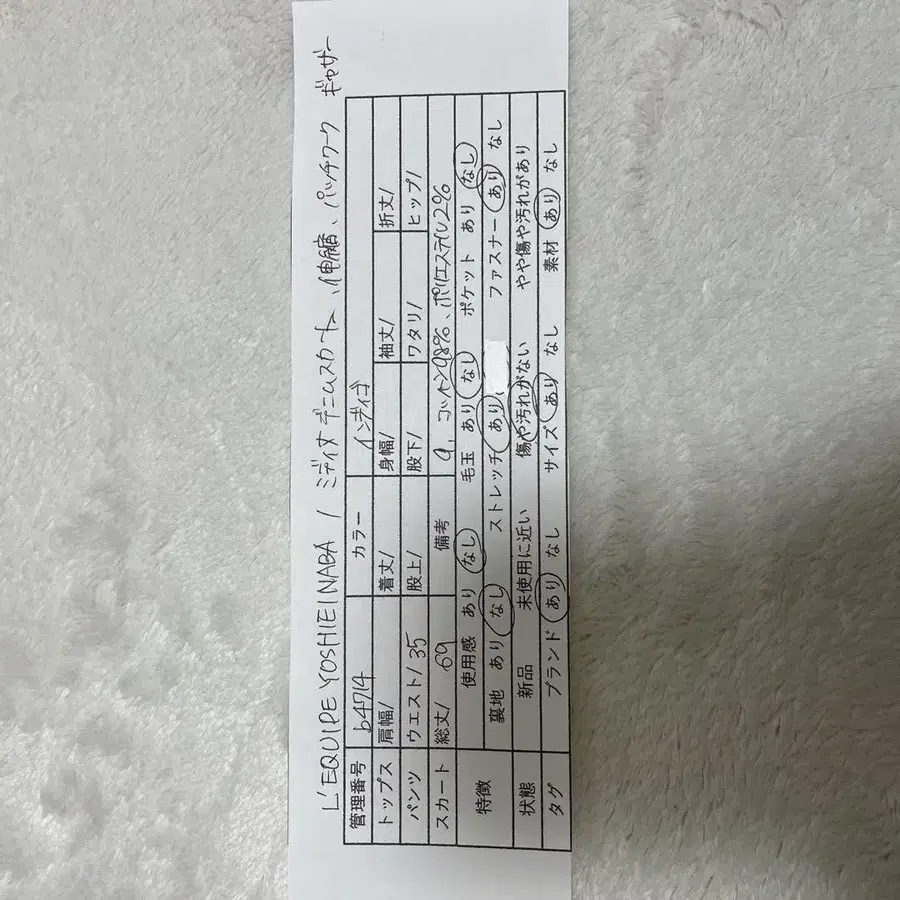 L'EQUIPE YOSHIE INABA / ミディ丈 デニムスカート、伸縮、パッチワーク ギャザー
管理番号 b4714 カラー インディゴ
トップス 肩幅/ 着丈/ 身幅/ 袖丈/ 折丈/
パンツ ウエスト/35 股上/ 股下/ ワタリ/ ヒップ/
スカート 総丈/ 69 備考 9, コットン98%、ポリエステル2%
特徴 使用感 あり なし 毛玉 あり なし ポケット あり なし
裏地 あり なし ストレッチ あり ファスナー あり なし
状態 新品 未使用に近い 傷や汚れがない やや傷や汚れがあり
タグ ブランド あり なし サイズ あり なし 素材 あり なし